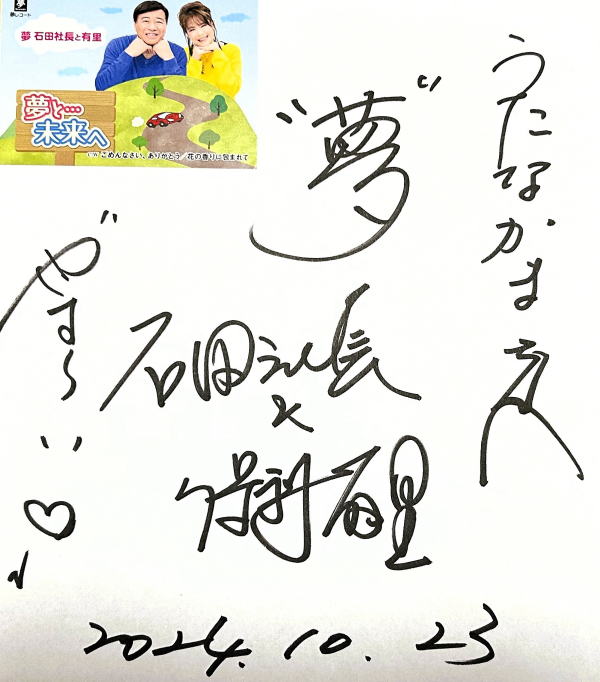 夢レコード
夢 石田社長と有里
夢と…
未来へ
c/w ごめんなさい、ありがとう／花の香りに包まれて
うたなかま さん
"夢"
石田社長
と
保科有里
"やすく"
♡
2024.10.23